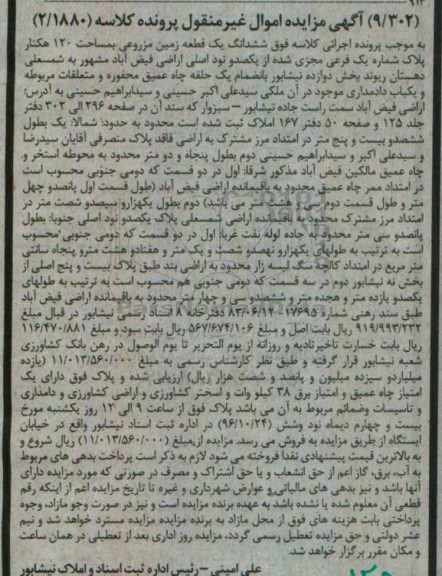 (۹/۳۰۲) آگهی مزایده اموال غیرمنقول پرونده کلاسه (۲/۱۸۸۰)
به موجب پرونده اجرائی کلاسه فوق ششدانگ یک قطعه زمین مزروعی بمساحت ۱۲۰ هکتار
پلاک شماره یک فرعی مجزی شده از یکصدو نود اصلی اراضی فیض آباد مشهور به شمسعلی
دهستان ریوند بخش دوازده نیشابور بانضمام یک حلقه چاه عمیق محفوره و متعلقات مربوطه
و یکباب دامداری موجود در آن ملکی سیدعلی اکبر حسینی و سیدابراهیم حسینی به آدرس:
اراضی فیض آباد سمت راست جاده نیشابور – سبزوار که سند آن در صفحه ۲۹۶ الی ۳۰۲ دفتر
جلد ۱۲۵ و صفحه ۵۰ دفتر ۱۶۷ املاک ثبت شده است محدود به حدود: شمالا: یک بطول
ششصدو بیست و پنج متر در امتداد مرز مشترک به اراضی فاقد پلاک متصرفی آقایان سیدرضا
و سیدعلی اکبر و سیدابراهیم حسینی دوم بطول پنجاه و دو متر محدود به محوطه استخر و
چاه عمیق مالکین فیض آباد مذکور شرقا: اول در دو قسمت که دومی جنوبی محسوب است
در امتداد ممر چاه عمیق محدود به باقیمانده اراضی فیض آباد (طول قسمت اول پانصدو چهل
متر و طول قسمت دوم سی و هشت متر می باشد) دوم بطول یکهزارو سیصدو شصت متر در
امتداد مرز مشترک محدود به باقیمانده اراضی شمسعلی پلاک یکصدو نود اصلی جنوبا: بطول
پانصدو سی متر محدود به جاده لوله نفت غربا: اول در دو قسمت که دومی جنوبی محسوب
است به ترتیب به طولهای یکهزارو نهصدو شصت و یک متر و هفتادو هشت مترو پنجاه سانتی
متر مربع در امتداد کالچه سنگ لیسه زار محدود به اراضی بند طبق پلاک بیست و پنج اصلی از
بخش نه نیشابور دوم در سه قسمت که دومی جنوبی هم محسوب است به ترتیب به طولهای
یکصدو یازده متر و هجده متر و ششصدو سی و چهار متر محدود به باقیمانده اراضی فیض آباد
طبق سند رهنی شماره ۱۷۶۹۵-۸۳/۰۶/۱۲ دفترخانه ۸ اسناد رسمی نیشابور در قبال مبلغ
۹۱۹/۹۹۳/۲۳۲ ریال بابت اصل و مبلغ ۵۶۷/۶۷۴/۱۰۶ ریال بابت سود و مبلغ ۱۱۶/۴۷۰/۸۸۱
ریال بابت خسارت تاخیرتادیه و روزانه از یوم التحریر تا یوم الوصول در رهن بانک کشاورزی
شعبه نیشابور قرار گرفته و طبق نظر کارشناس رسمی به مبلغ ۱۱/۰۱۳/۵۶۰/۰۰۰ (یازده
میلیاردو سیزده میلیون و پانصد و شصت هزار ریال) ارزیابی شده و پلاک فوق دارای یک
امتیاز چاه عمیق و امتیاز برق ۳۸ کیلو وات و استخر کشاورزی و اراضی کشاورزی و دامداری
و تاسیسات وضمائم مربوط به آن می باشد پلاک فوق از ساعت ۹ الی ۱۲ روز یکشنبه مورخ
بیست و چهارم دیماه نود وشش (۹۶/۱۰/۲۴) در اداره ثبت اسناد نیشابور واقع در خیابان
ایستگاه از طریق مزایده به فروش می رسد. مزایده ازمبلغ (۱۱/۰۱۳/۵۶۰/۰۰۰) ریال شروع و
به بالاترین قیمت پیشنهادی نقدا فروخته می شود لازم به ذکر است پرداخت بدهی های مربوط
به آب، برق، گاز اعم از حق انشعاب و یا حق اشتراک و مصرف در صورتی که مورد مزایده دارای
آنها باشد و نیز بدهی های مالیاتی و عوارض شهرداری و غیره تا تاریخ مزایده اعم از اینکه رقم
قطعی آن معلوم شده یا نشده باشد به عهده برنده مزایده است و نیز در صورت وجو مازاد، وجوه
پرداختی بابت هزینه های فوق از محل مازاد به برنده مزایده مزایده مسترد خواهد شد و نیم
عشر دولتی و حق مزایده تعطیل رسمی گردد، مزایده روز اداری بعد از تعطیلی در همان ساعت
و مکان مقرر برگزار خواهد شد.
علی امینی – رئیس اداره ثبت اسناد و املاک نیشابور